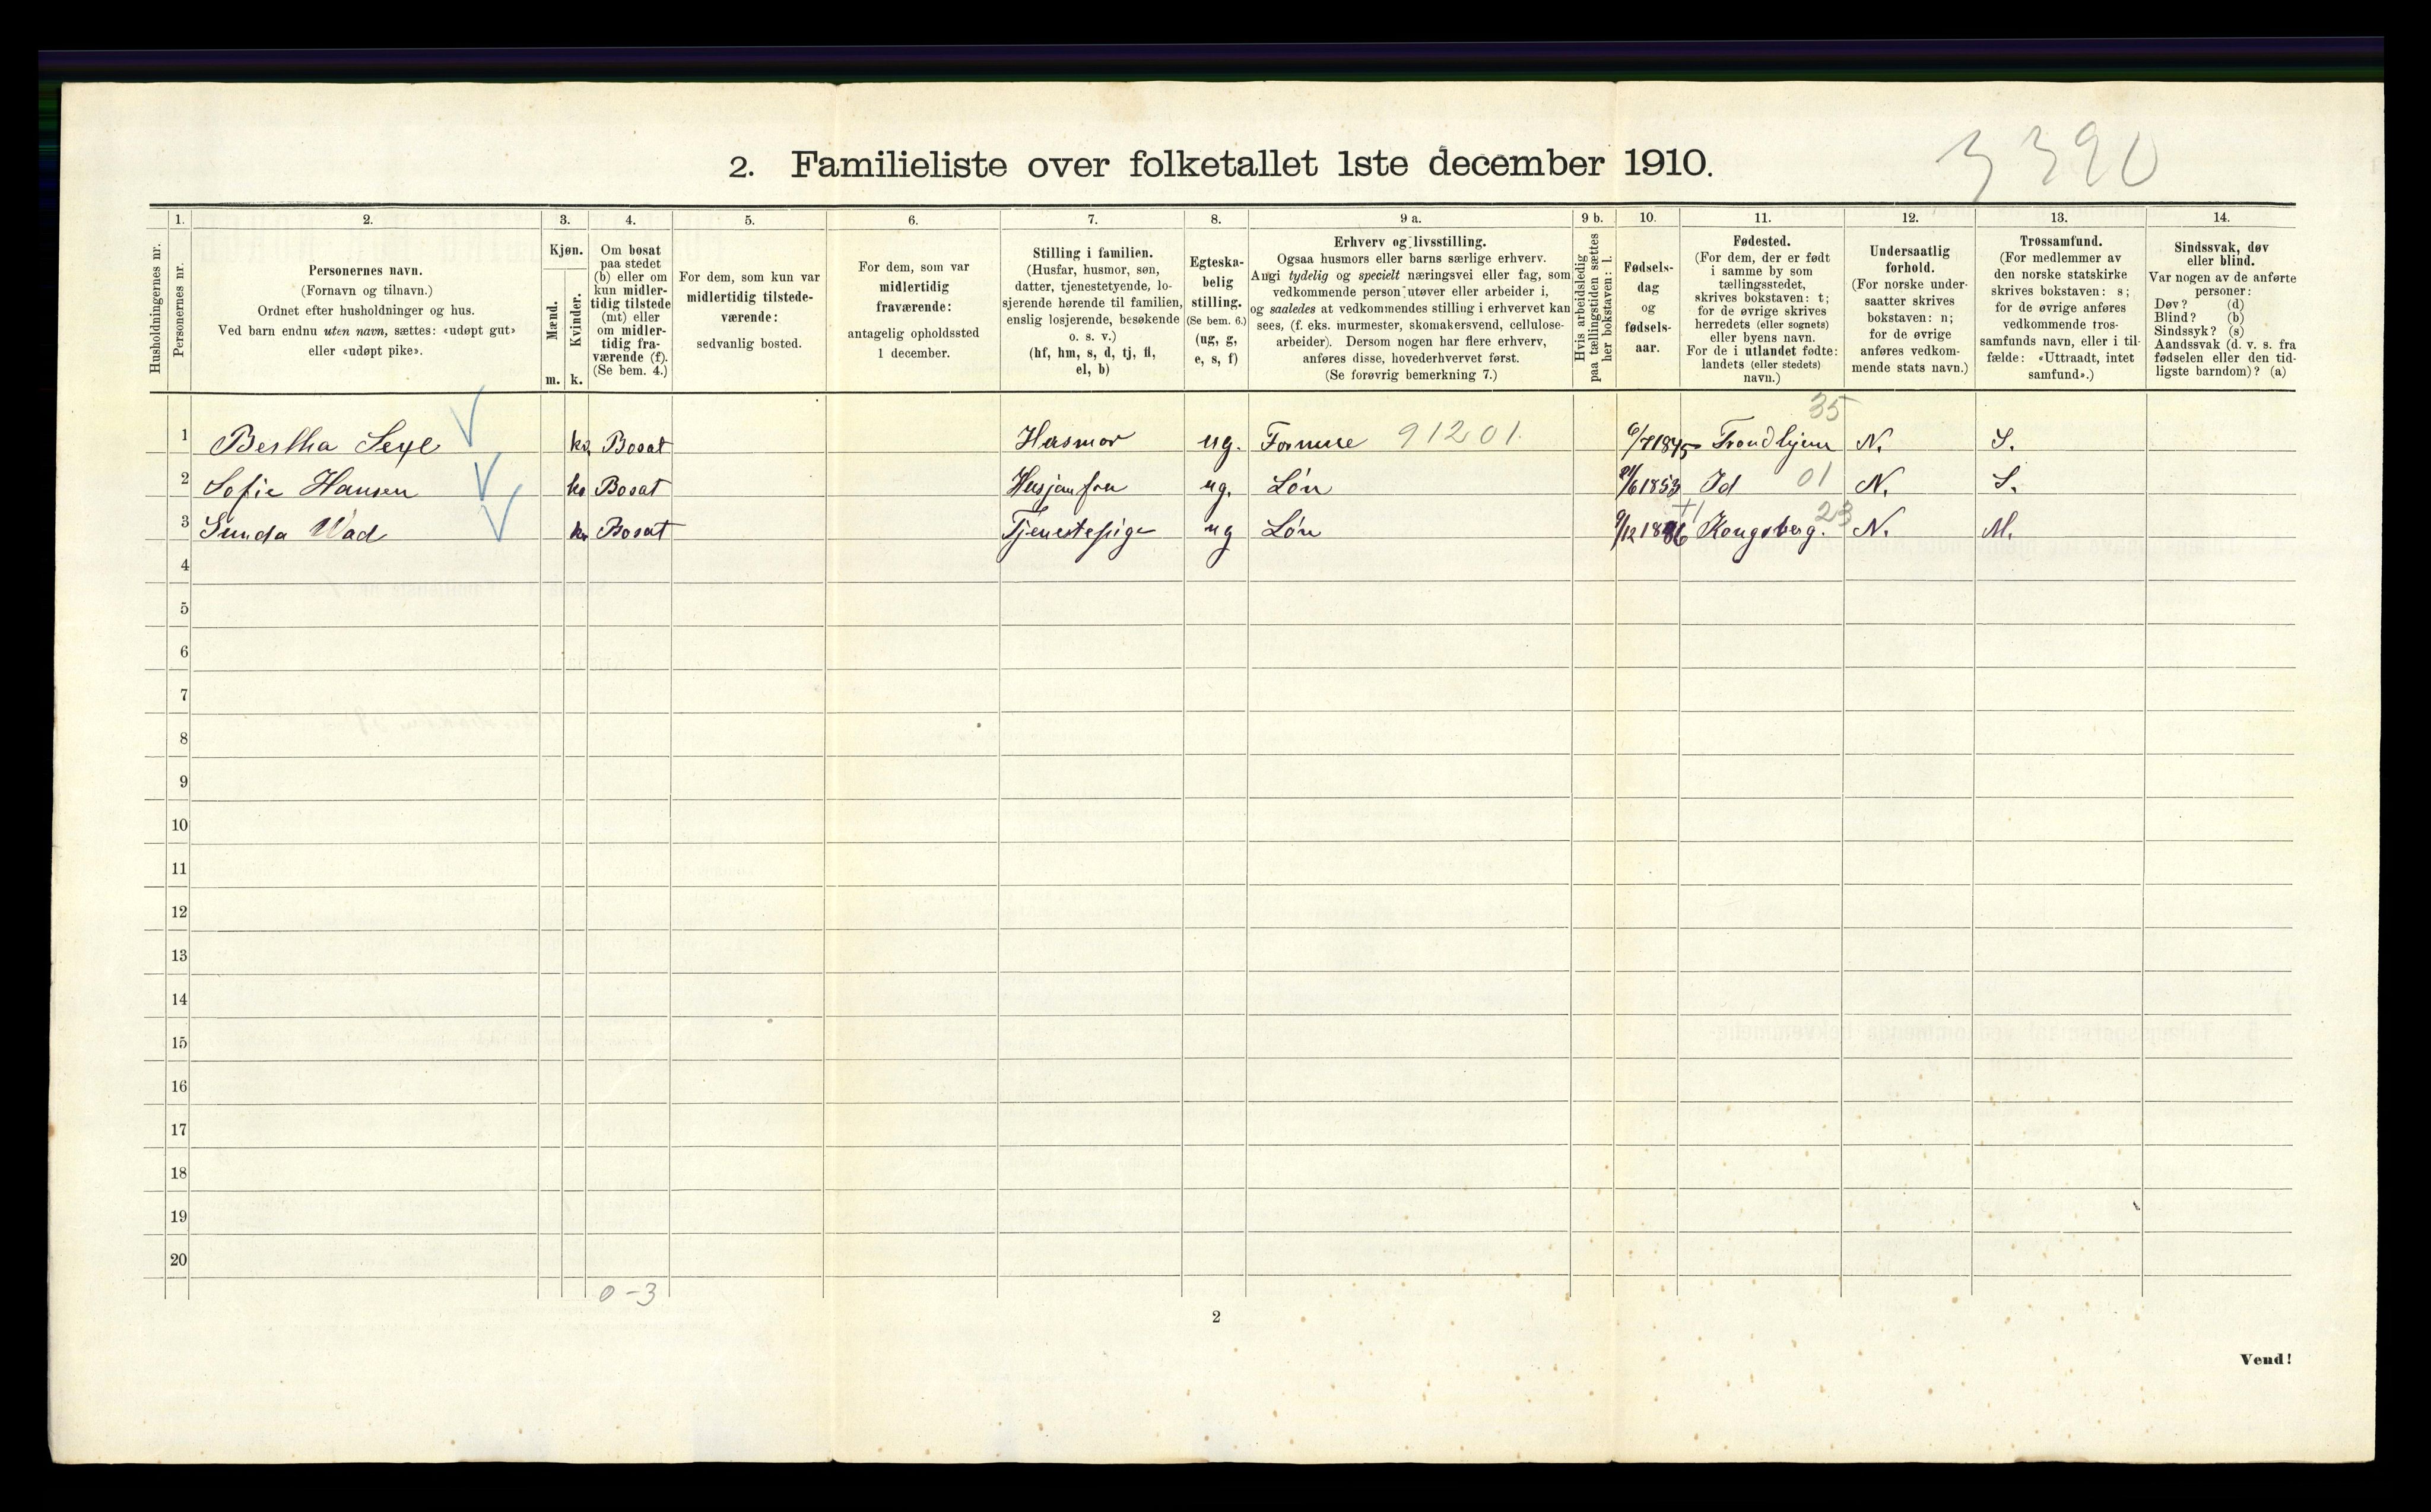 3390
2. Familieliste over folketallet 1ste december 1910.
1. 2. 3. 4. 5. 6. 7. 8. 9 a. 9 b. 10. 11. 12. 13. 14.
Husholdningernes nr.
Personernes nr.
Personernes navn.
(Fornavn og tilnavn.)
Ordnet efter husholdninger og hus.
Ved barn endnu uten navn, sættes: «udøpt gut»
eller «udøpt pike».
Kjøn.
Mænd.
Kvinder.
m. k.
Om bosat
paa stedet
(b) eller om
kun midler-
tidig tilstede
(mt) eller
om midler-
tidig fra-
værende (f).
(Se bem. 4.)
For dem, som kun var
midlertidig tilstede-
værende:
sedvanlig bosted.
For dem, som var
midlertidig
fraværende:
antagelig opholdssted
1 december.
Stilling i familien.
(Husfar, husmor, søn,
datter, tjenestetyende, lo-
sjerende hørende til familien,
enslig losjerende, besøkende
o. s. v.)
(hf, hm, s, d, tj, fl,
el, b)
Egteska-
belig
stilling.
(Se bem. 6.)
(ug, g,
e, s, f)
Erhverv og livsstilling.
Ogsaa husmors eller barns særlige erhverv.
Angi tydelig og specielt næringsvei eller fag, som
vedkommende person utøver eller arbeider i,
og saaledes at vedkommendes stilling i erhvervet kan
sees, (f. eks. murmester, skomakersvend, cellulose-
arbeider). Dersom nogen har flere erhverv,
anføres disse, hovederhvervet først.
(Se forøvrig bemerkning 7.)
Hvis arbeidsledig
paa tællingstiden sættes
her bokstaven: l.
Fødsels-
dag
og
fødsels-
aar.
Fødested.
(For dem, der er født
i samme by som
tællingsstedet,
skrives bokstaven: t;
for de øvrige skrives
herredets (eller sognets)
eller byens navn.
For de i utlandet fødte:
landets (eller stedets)
navn.)
Undersaatlig
forhold.
(For norske under-
saatter skrives
bokstaven: n;
for de øvrige
anføres vedkom-
mende stats navn.)
Trossamfund.
(For medlemmer av
den norske statskirke
skrives bokstaven: s;
for de øvrige anføres
vedkommende tros-
samfunds navn, eller i til-
fælde: «Uttraadt, intet
samfund».)
Sindssvak, døv
eller blind.
Var nogen av de anførte
personer:
Døv? (d)
Blind? (b)
Sindssyk? (s)
Aandssvak (d. v. s. fra
fødselen eller den tid-
ligste barndom)? (a)
35
1 Bertha k Bosat Husmor ug. Formue 91201. 6/7 1845 Trondhjem N. S.
2 Sofie Hansen k Bosat Husjomfru ug. Løn /6 1853 Id 01 N. S.
23
3 Gunda Wad k Bosat Tjenestepige ug Løn 9/12 Kongsberg. N. M.
4
5
6
7
8
9
10
11
12
13
14
15
16
17
18
19
20
0-3
2
Vend!